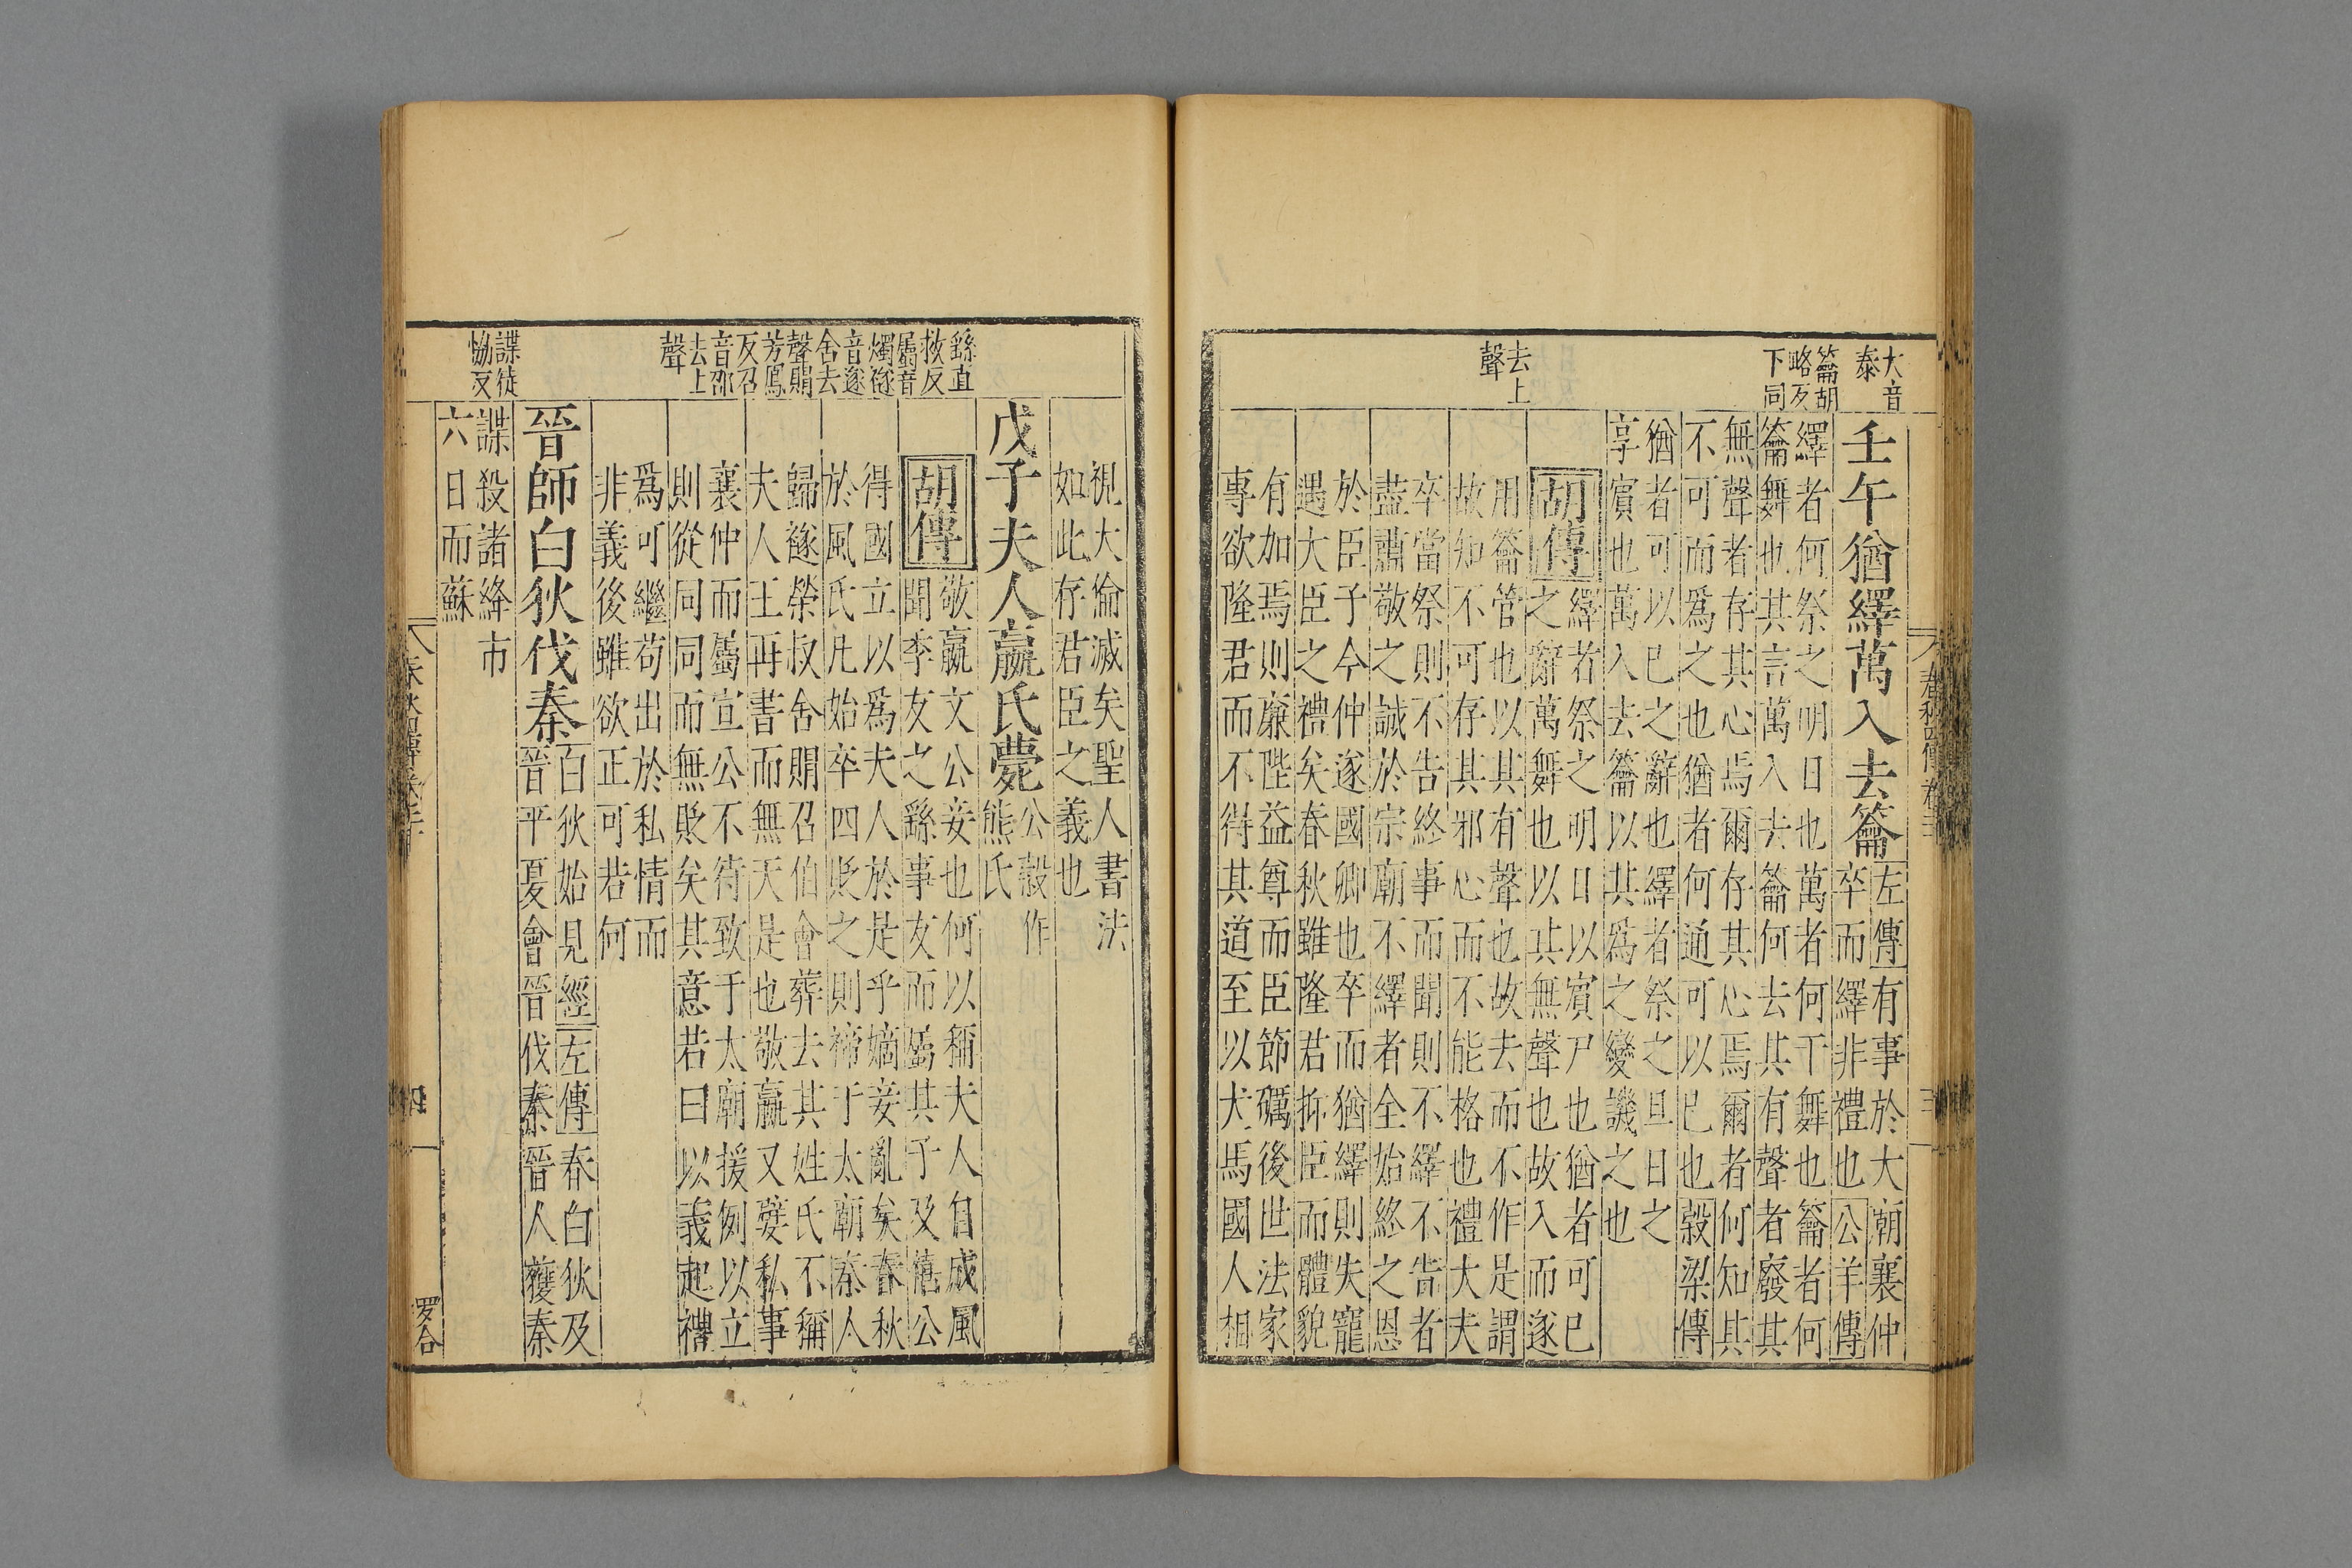 大音
泰
籥胡
略反
下同
去上
聲
壬午猶繹萬入去籥
左傳有事於大朝襄仲
卒而繹非禮也公羊傳
繹者何祭之明日也萬者何干舞也籥者何
籥舞也其言萬入去籥何去其有聲者廢其
無聲者存其心焉爾存其心焉爾者何知其
不可而爲之也猶者何通可以已也穀梁傳
猶者可以已之辭也繹者祭之旦日之
享賓也萬入去籥以其爲之變譏之也
胡傳
繹者祭之明日以賓尸也猶者可已
之辭萬舞也以其無聲也故入而遂
用籥管也以其有聲也故去而不作是謂
故知不可存其邪心而不能格也禮大夫
卒當祭則不告終事而聞則不繹不告者
盡肅敬之誠於宗廟不繹者全始終之恩
於臣子今仲遂國卿也卒而猶繹則失寵
遇大臣之禮矣春秋雖隆君抑臣而體貌
有加焉則廉陛益尊而臣節礪後世法家
專欲隆君而不得其道至以犬馬國人相
視大倫滅矣聖人書法
如此存君臣之義也
戊子夫人嬴氏薨
公穀作
熊氏
胡傳
敬嬴文公妾也何以稱夫人自成風
聞季友之繇事友而屬其子及僖公
得國立以爲夫人於是乎嫡妾亂矣春秋
於風氏凡始卒四貶之則禘于太廟秦人
歸襚榮叔含賵召伯會葬去其姓氏不稱
夫人王再書而無天是也敬嬴又嬖私事
襄仲而屬宣公不待致于太廟援例以立
則從同同而無貶矣其意若曰以義起禮
爲可繼苟出於私情而
非義後雖欲正可若何
晉師白狄伐秦
白狄始見經左傳春白狄及
晉平夏會晉伐秦晉人獲秦
諜殺諸絳市
六日而蘇
繇直
救反
屬音
燭襚
音遂
舍去
聲賵
芳鳳
反召
音邵
去上
聲
諜徒
恊反
罗合